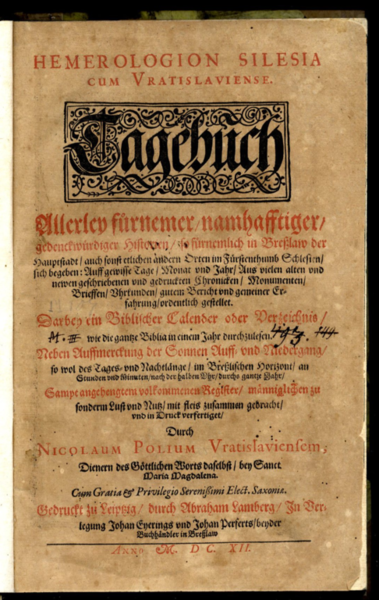 HEMEROLOGION SILESIA
CUM VRATISLAVIENSE.
Tagebuch
Allerley fürnemer/ namhafftiger/
gedenckwürdiger Historien/ so fürnemlich in Breßlaw der
Hauptstadt/ auch sonst etlichen andern Orten im Fürstenthumb Schlesien/
sich begeben: Auff gewisse Tage/ Monat vnd Jahr/ Aus vielen alten vnd
newen geschriebenen vnd gedruckten Chronicken/ Monumenten/
Brieffen/ Vhrkunden/ gutem Bericht vnd gemeiner Er-
fahrung/ ordentlich gestellet.
Darbey ein Biblischer Calender oder Verzeichnis/
wie die gantze Biblia in einem Jahr durchzulesen.
Neben Auffmerckung der Sonnen Auff- vnd Niedergang/
so wol des Tages- vnd Nachtlänge/ im Breßlischen Horizont/ an
Stunden vnd Minuten/ nach der halben Vhr/ durchs gantze Jahr/
Sampt angehengtem volkommenen Register/ männiglichen zu
sondern Lust vnd Nutz/ mit fleis zusammen gebracht/
vnd in Druck verfertiget/
Durch
NICOLAUM POLIUM Vratislaviensem,
Dienern des Göttlichen Worts daselbst/ bey Sanct
Maria Magdalena.
Cum Gratia & Privilegio Serenissimi Elect. Saxoniæ.
Gedruckt zu Leipzig/ durch Abraham Lamberg/ In Ver-
legung Johan Eyerings vnd Johan Perferts/ beyder
Buchhändler in Breßlaw
ANNO M. DC. XII.